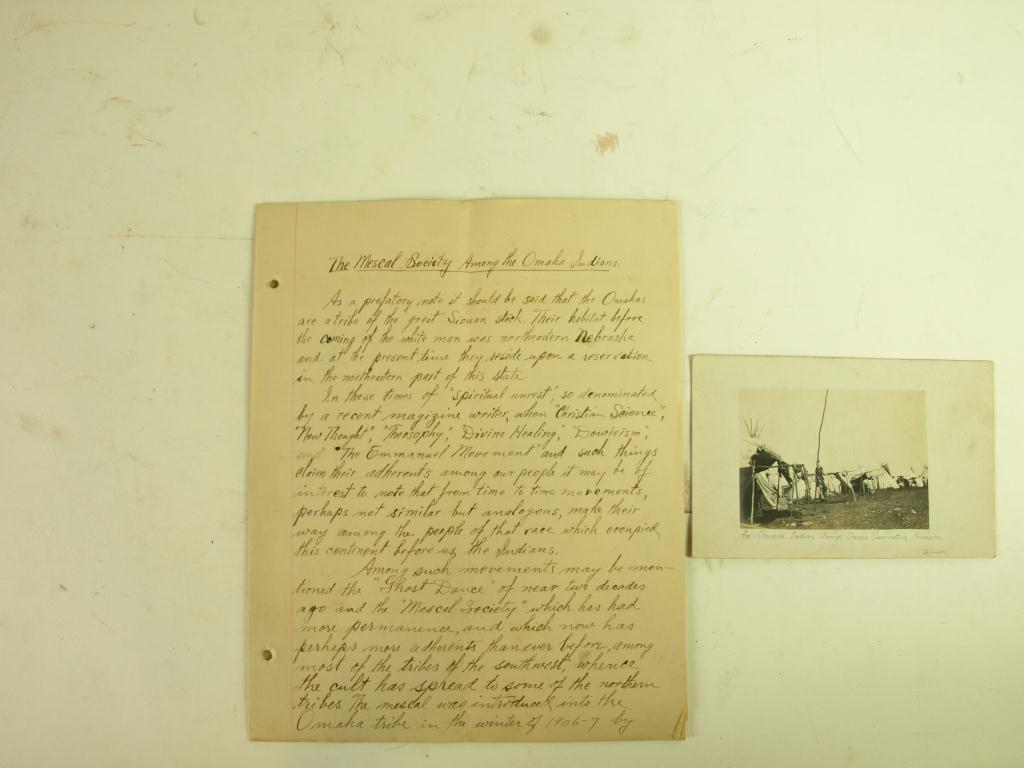 The Mescal Society Among the Omaha Indians.
As a prefatory note it should be said that the Omahas
are a tribe of the great Siouan stock. Their habitat before
the coming of the white man was northeastern Nebraska
and at the present time they reside upon a reservation
in the northeastern part of this state.
In these times of "spiritual unrest", so denominated
by a recent magizine writer, when "Christian Science",
"New Thought", "Theosophy", "Divine Healing", "Dowieism",
and "The Emmanuel Movement" and such things
claim their adherents among our people it may be of
interest to note that from time to time movements,
perhaps not similar but analogous, make their
way among the people of that race which occupied
this continent before us, the Indians.
Among such movements may be men-
tioned the "Ghost Dance" of near two decades
ago and the "Mescal Society" which has had
more permanence, and which now has
perhaps more adherents than ever before, among
most of the tribes of the southwest, whence
the cult has spread to some of the northern
tribes. The mescal was introduced into the
Omaha tribe in the winter of 1906-7 by
An Omaha Indian Camp, Omaha Reservation, Nebraska